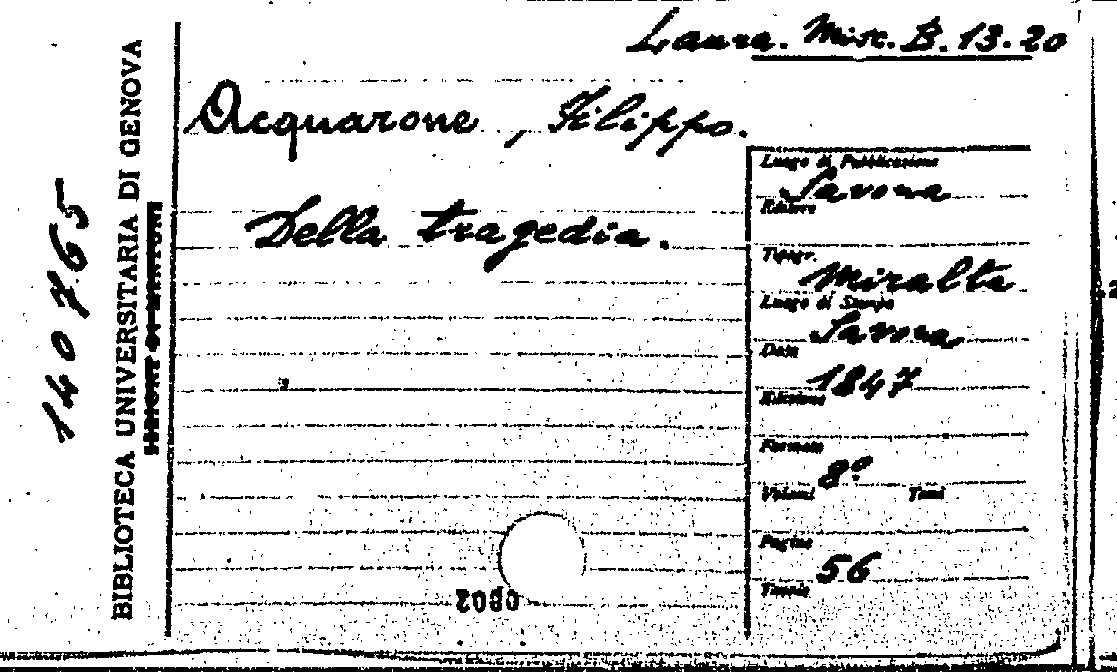 Laura. Misc. B. 13. 20
Acquarone, Filippo.
Della tragedia.
Luogo di Pubblicazione
Savona
Editore
Tipogr.
Miralta
Luogo di Stampa
Savona
Data
1847
Edizione
Formato
8º
Volumi Tomi
Pagine
56
Tavole
140765
BIBLIOTECA UNIVERSITARIA DI GENOVA
0802